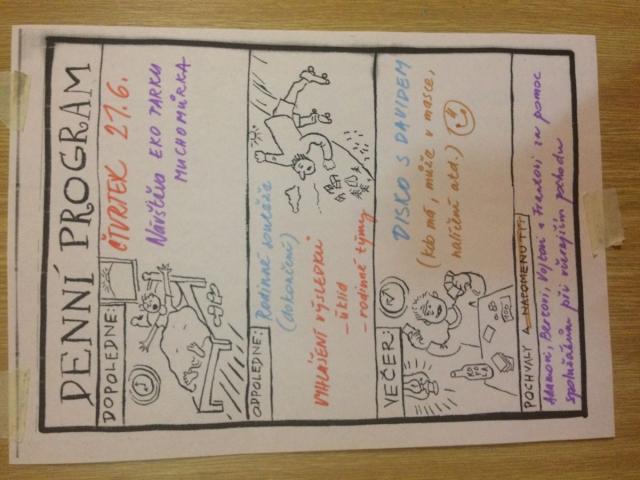 DENNÍ PROGRAM
DOPOLEDNE:
ČTVRTEK 27.6.
Návštěva EKO PARKU
MUCHOMŮRKA
ODPOLEDNE:
Rodinné soutěže
(dokončení)
VYHLÁŠENÍ VÝSLEDKŮ
- úklid
- rodinné týmy
VEČER:
DISKO S DAVIDEM
(kdo má, může v masce,
nalíčení atd.)
POCHVALY A NAPOMENUTÍ:
Adamovi, Bertovi, Vojtovi a Frantovi za pomoc
spolužákům při včerejším pochodu